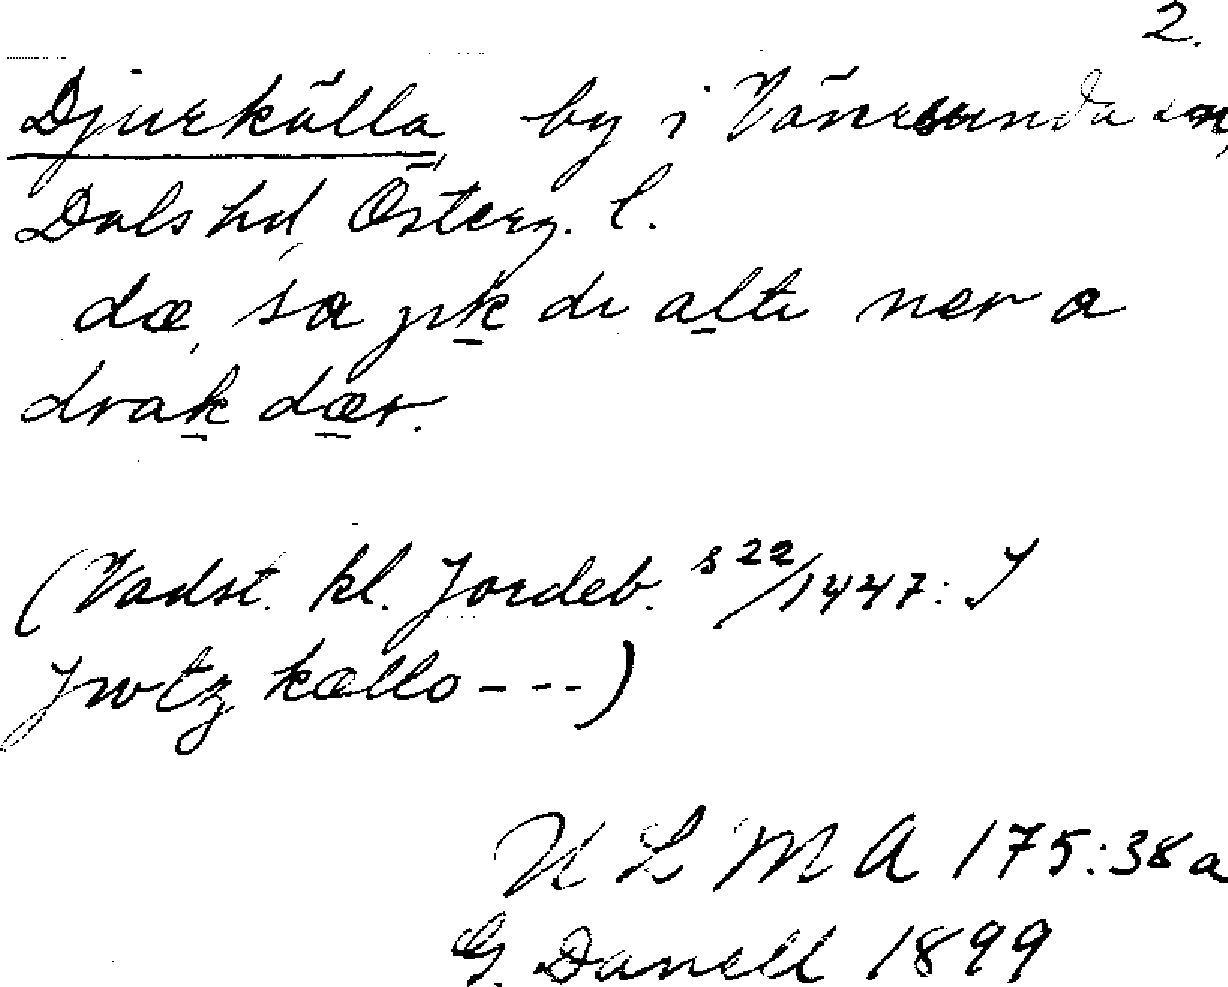 2.
Djurkälla, by i Vänersunda sn,
Dals hd, Österg. l.
dæ, sa jik di alti ner a
drak dær.
(Vadst. kl. Jordeb. s 22/1447: J
Jwtz kællo - - - )
ULMA 175:38a
G. Danell 1899